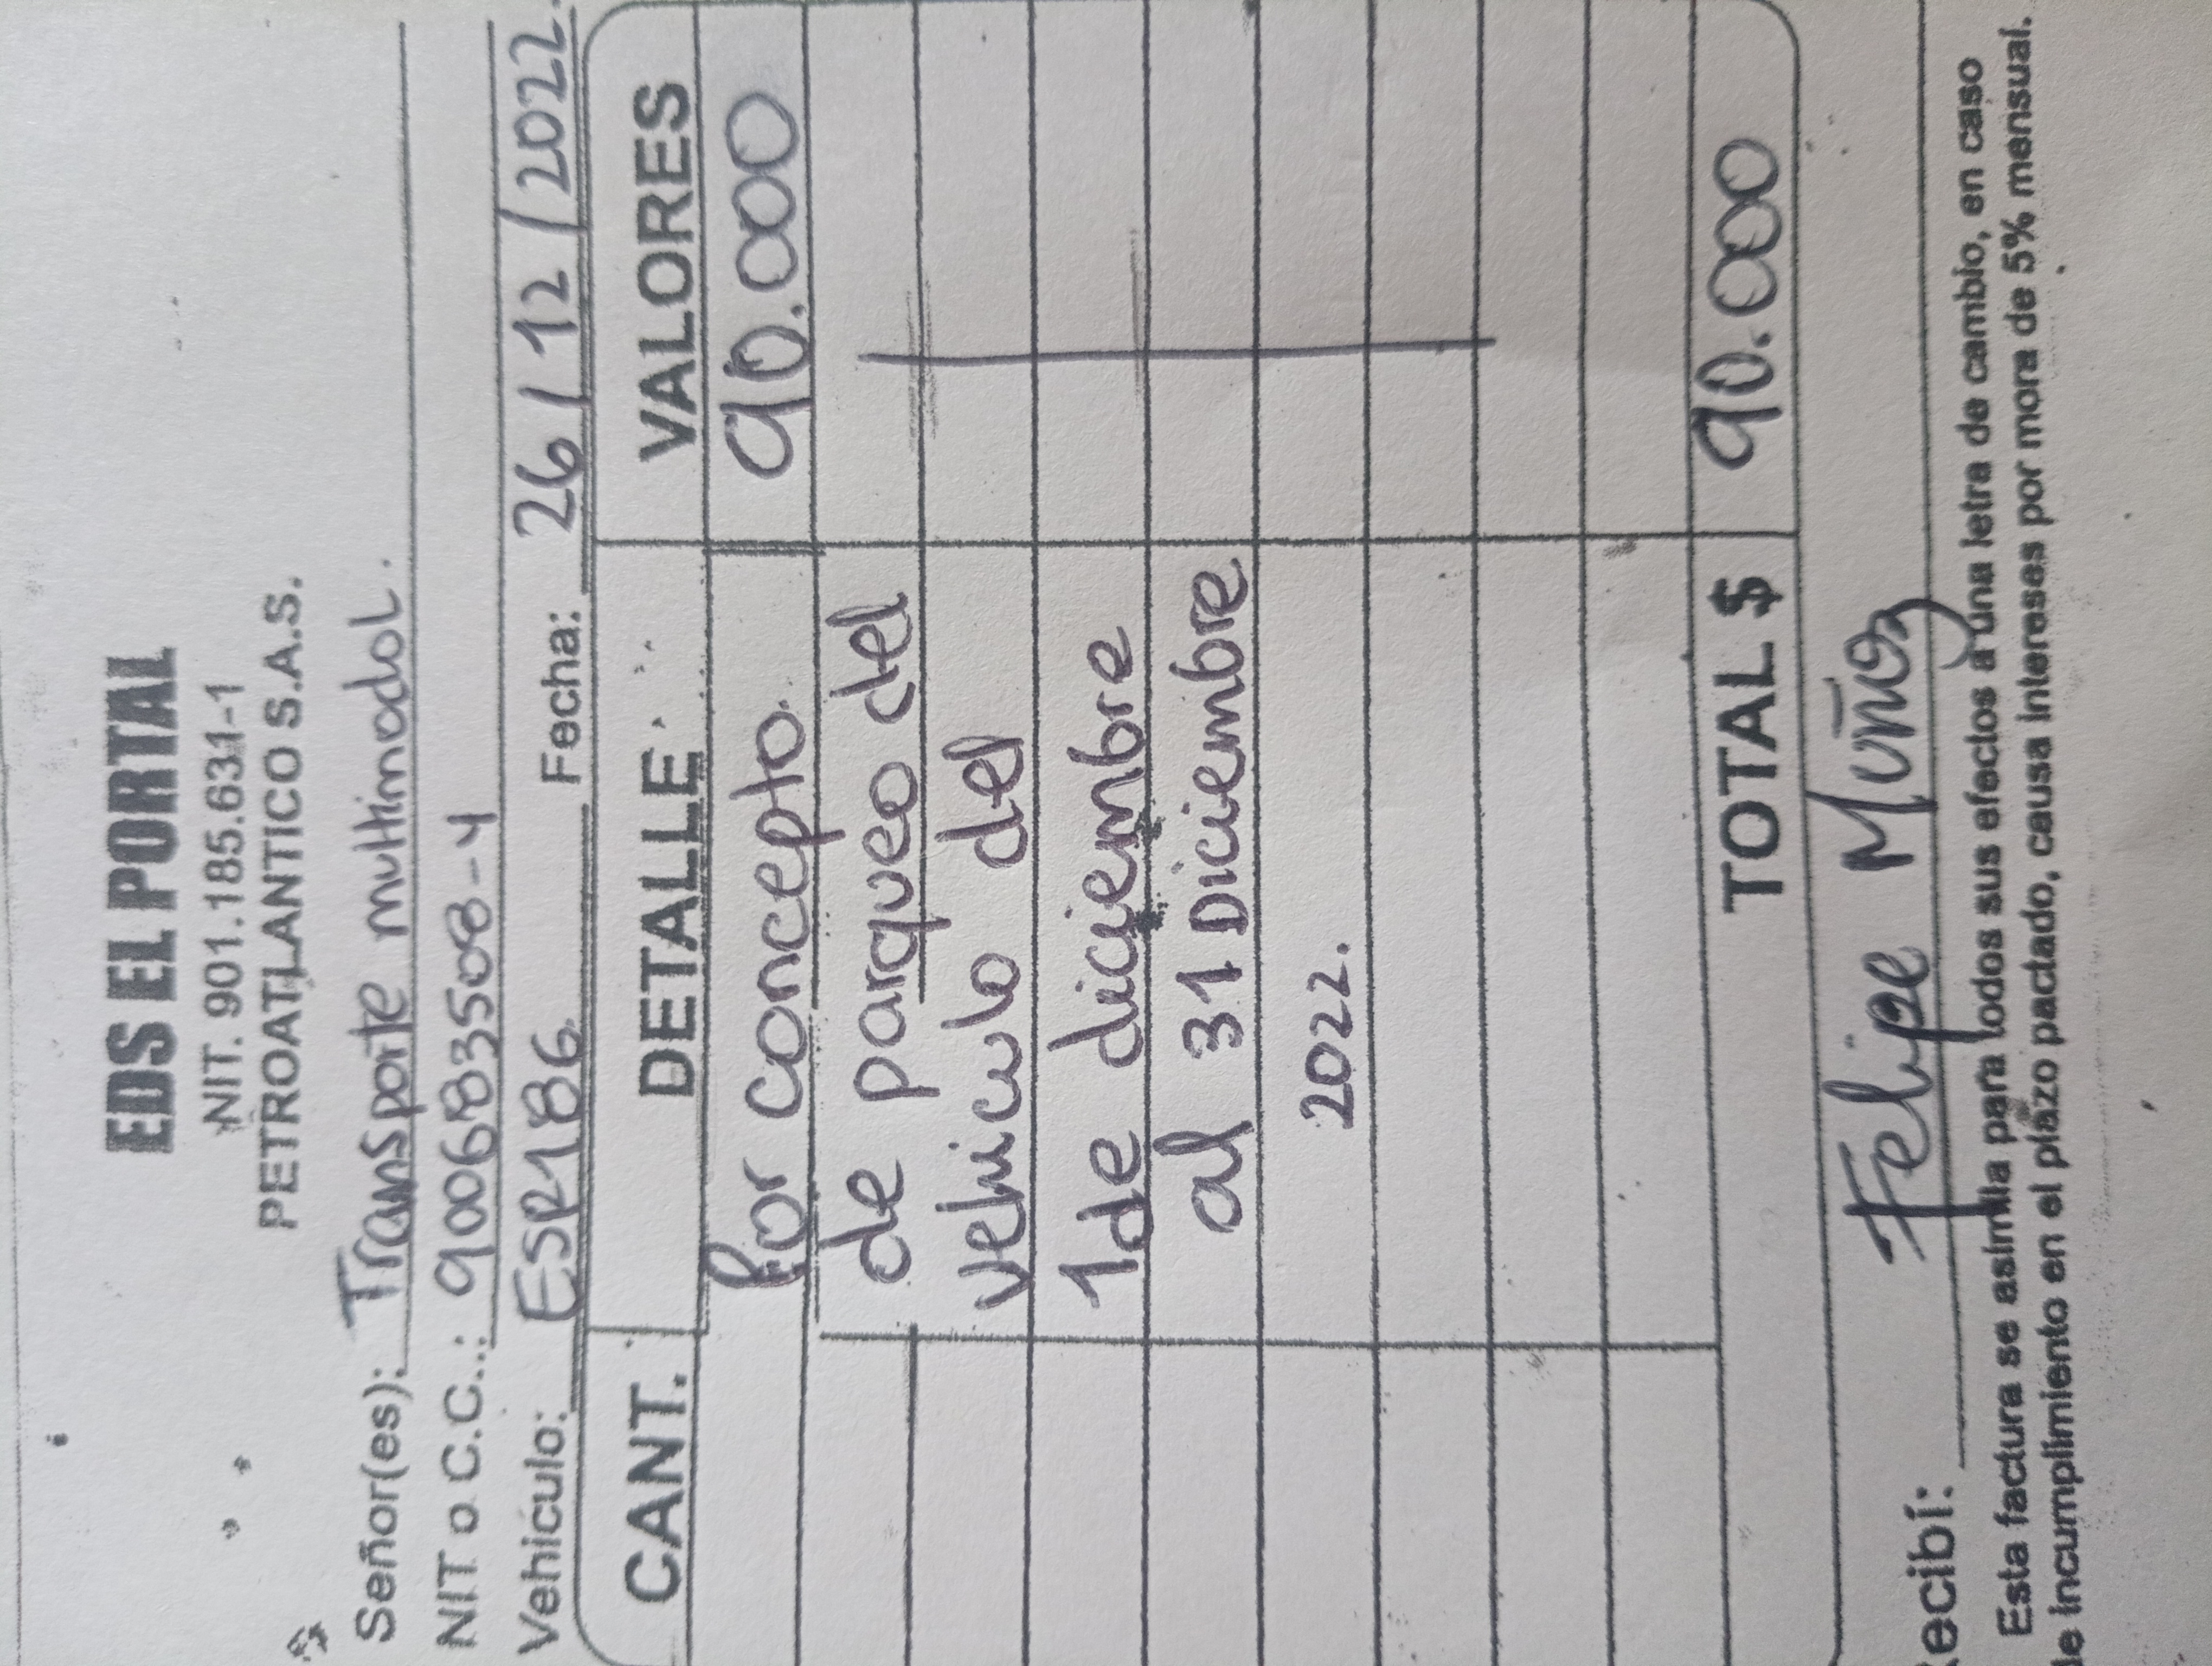 EDS EL PORTAL
NIT. 901.185.631-1
PETROATLANTICO S.A.S.
Señor(es): Transporte multimodal.
NIT o C.C.: 900683508-4
Vehículo: ESR186 Fecha: 26/12/2022
CANT. DETALLE VALORES
Por concepto 90.000
de parqueo del
vehiculo del
1 de diciembre
al 31 Diciembre
2022.
TOTAL $ 90.000
Recibí: Felipe Muñoz
Esta factura se asimila para todos sus efectos a una letra de cambio, en caso
de incumplimiento en el plazo pactado, causa intereses por mora de 5% mensual.